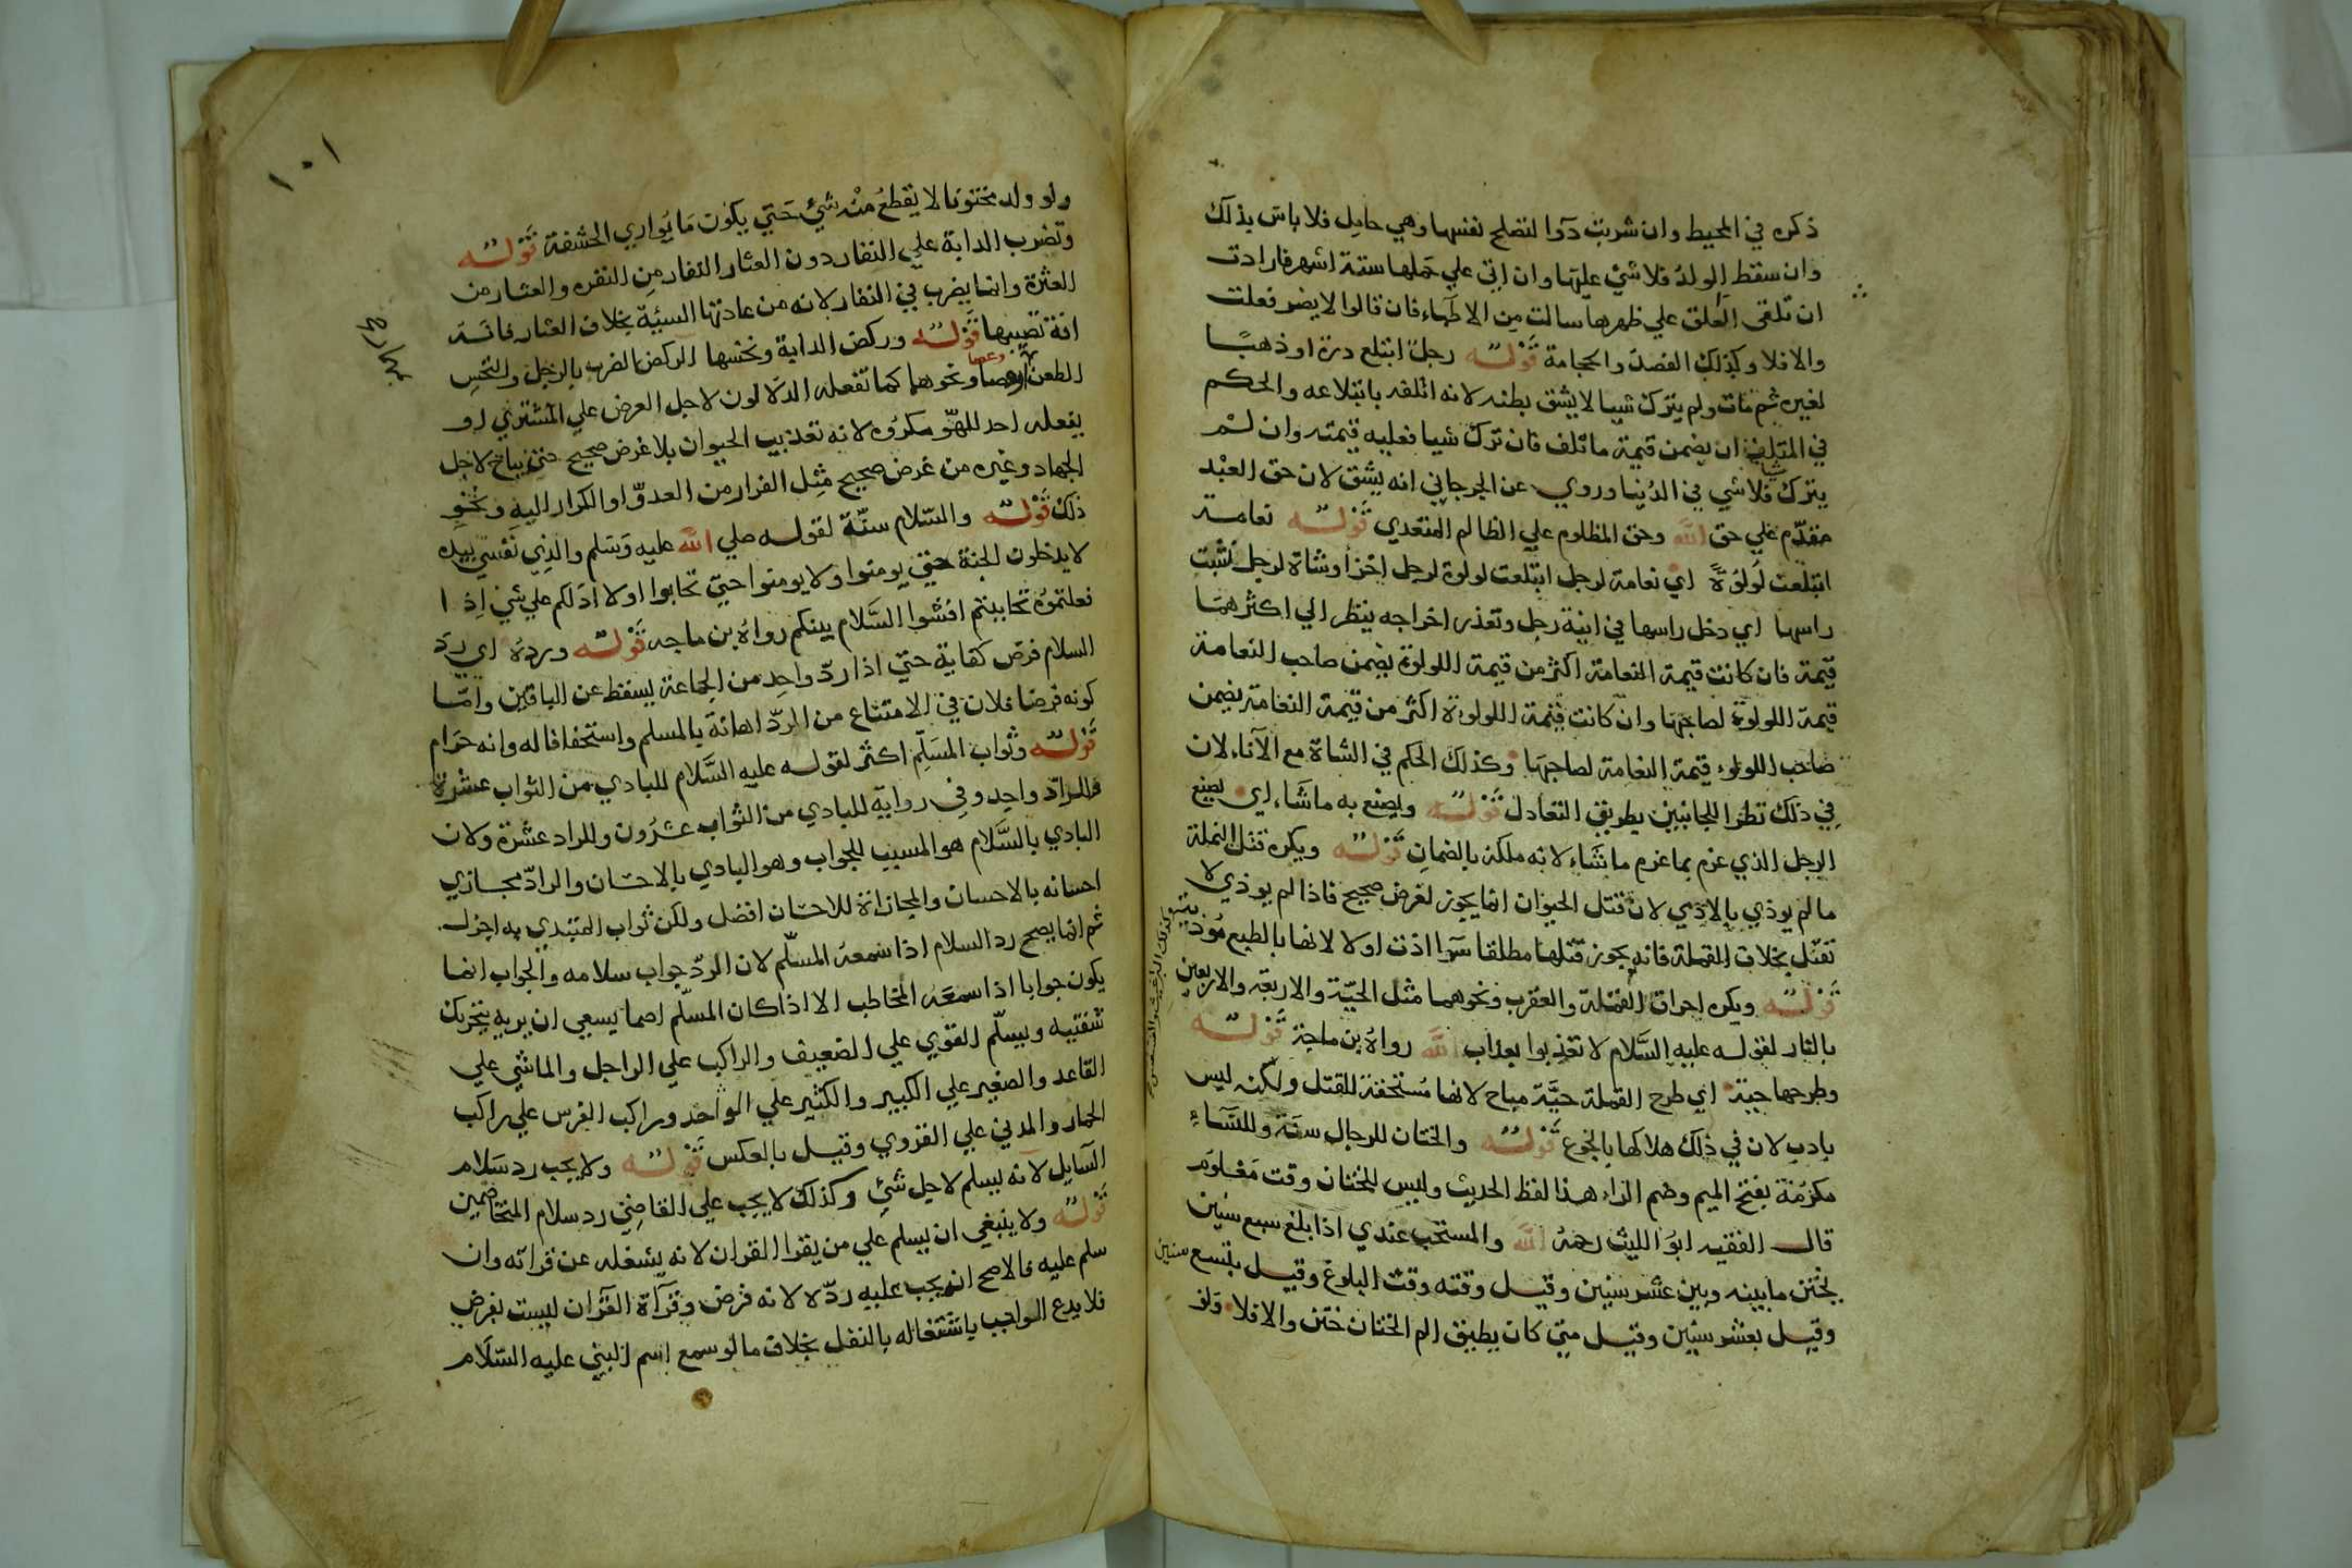 ذكره في المحيط وان شربت دوا لتصلح نفسها وهي حامل فلا باس بذلك
وان سقط الولد فلا شي عليها وان اتى علي حملها ستة اشهر فارادت
ان تلقى العلق علي ظهرها سالت من الاطباء فان قالوا لا يضر فعلت
والا فلا وكذلك الفصد والحجامة قوله رجل ابتلع درة او ذهبًا
لغيره ثم مات ولم يترك شيا لا يشق بطنه لانه اتلفه بابتلاعه والحكم
في المتلف ان يضمن قيمة ما تلف فان ترك شيا فعليه قيمته وان لم
يترك شيا فلا شي في الدنيا وروي عن الجرجاني انه يشق لان حق العبد
مقدم علي حق الله وحق المظلوم علي الظالم المتعدي قوله نعامة
ابتلعت لولوة اي نعامة لرجل ابتلعت لولوة لرجل اخر او شاة لرجل نشبت
راسها اي دخل راسها في انية رجل وتعذر اخراجه ينظر الي اكثرهما
قيمة فان كانت قيمة النعامة اكثر من قيمة اللولوة يضمن صاحب النعامة
قيمة اللولوة لصاحبها وان كانت قيمة اللولوة اكثر من قيمة النعامة يضمن
صاحب اللولو قيمة النعامة لصاحبها وكذلك الحكم في الشاة مع الاناء لان
في ذلك نظرا للجانبين بطريق التعادل قوله ويصنع به ما شاء اي يصنع
الرجل الذي غرم بما غرم ما شاء لانه ملكه بالضمان قوله ويكره قتل النملة
ما لم يوذي بالاذي لان قتل الحيوان انما يجوز لغرض صحيح فاذا لم يوذي لا
تقتل بخلاف القملة فانه يجوز قتلها مطلقا سوا اذت او لا لانها بالطبع موذية
قوله ويكره احراق القملة والعقرب ونحوهما مثل الحية والاربعة والاربعين
بالنار لقوله عليه السلام لا تعذبوا بعذاب الله رواه بن ماجة قوله
وطرحها حية اي طرح القملة حيّة مباح لانها مستحقة للقتل ولكنه ليس
بادب لان في ذلك هلاكها بالجوع قوله والختان للرجال سنة وللنساء
مكرمة بفتح الميم وضم الراء هذا لفظ الحديث وليس للختان وقت معلوم
قال الفقيه ابو الليث رحمه الله والمستحب عندي اذا بلغ سبع سنين
يختن ما بينه وبين عشر سنين وقيل وقته وقت البلوغ وقيل بتسع سنين
وقيل بعشر سنين وقيل متي كان يطيق الم الختان ختن والا فلا ولو
١٠١
ولو ولد مختونا لا يقطع منه شي حتي يكون ما يواري الحشفة قوله
وتضرب الدابة علي النفار دون العثار النفار من النفره والعثار من
العثرة وانما يضرب في النفار لانه من عادتها السيئة بخلاف العثار فانه
افة تصيبها قوله وركض الدابة ونخسها الركض الضرب بالرجل والنخس
الطعن وعصا ونحوهما كما تفعله الدلالون لاجل العرض علي المشتري او
يفعله احد للهو مكروه لانه تعذيب الحيوان بلا غرض صحيح حتي يباح لاجل
الجهاد وغيره من غرض صحيح مثل الفرار من العدو او الكرار اليه ونحو
ذلك قوله والسلام سنة لقوله صلي الله عليه وسلم والذي نفسي بيده
لا يدخلون الجنة حتي يومنوا ولا يومنوا حتي تحابوا اولا ادلكم علي شي اذا
فعلتموه تحاببتم افشوا السلام بينكم رواه بن ماجه قوله ورده اي رد
السلام فرض كفاية حتي اذا رد واحد من الجماعة يسقط عن الباقين واما
كونه فرضا فلان في الامتناع من الرد اهانة بالمسلم واستخفافا له وانه حرام
قوله وثواب المسلم اكثر لقوله عليه السلام للبادي من الثواب عشرة
وللراد واحد وفي رواية للبادي من الثواب عشرون وللراد عشرة ولان
البادي بالسلام هو المسبب للجواب وهو البادي بالاحسان والراد مجازي
احسانه بالاحسان والمجازاة للاحسان افضل ولكن ثواب المبتدي به اجزل
ثم انما يصح رد السلام اذا سمعه المسلم لان الرد جواب سلامه والجواب انما
يكون جوابا اذا سمعه المخاطب الا اذا كان المسلم اصما يسعي ان يريه بتحريك
شفتيه ويسلم القوي علي الضعيف والراكب علي الراجل والماشي علي
القاعد والصغير علي الكبير والكثير علي الواحد وراكب الفرس علي راكب
الحمار والمدني علي القروي وقيل بالعكس قوله ولا يجب رد سلام
السايل لانه يسلم لاجل شي وكذلك لا يجب علي القاضي رد سلام المتخاصمين
قوله ولا ينبغي ان يسلم علي من يقرا القران لانه يشغله عن قراته وان
سلم عليه فالاصح انه يجب عليه رده لانه فرض وقرآة القرآن ليست بفرض
فلا يدع الواجب باشتغاله بالنفل بخلاف ما لو سمع اسم النبي عليه السلام